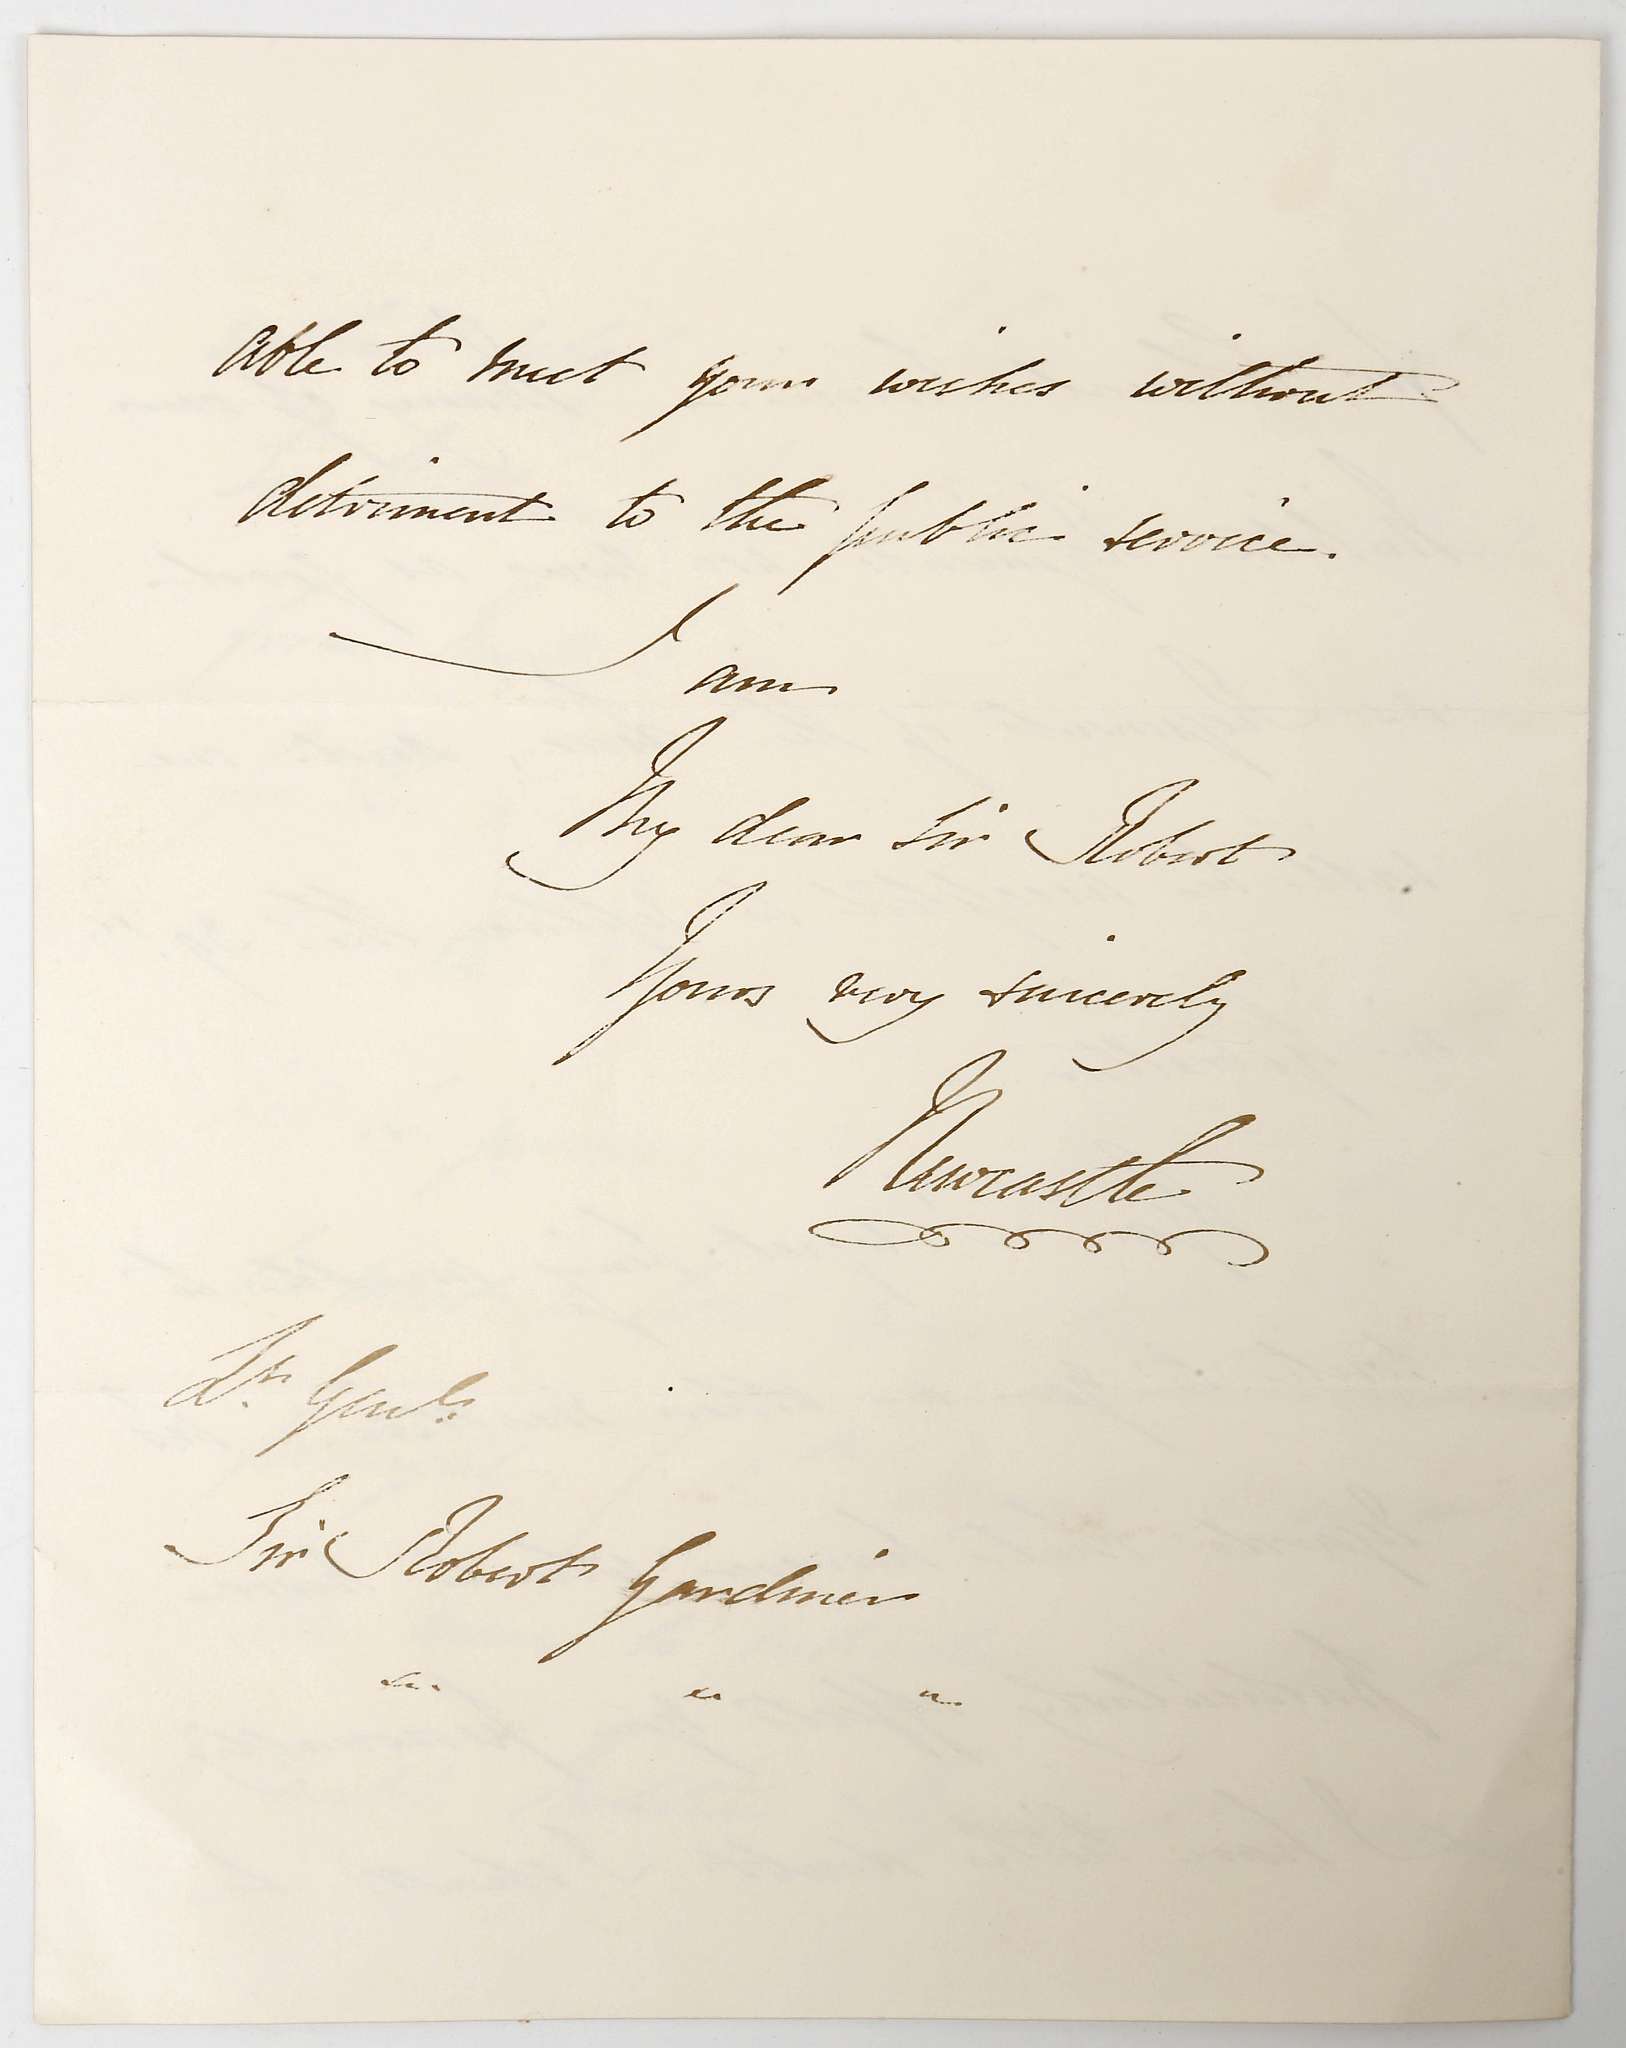 able to meet your wishes without
detriment to the public service.
I am
My dear Sir Robert
Yours very sincerely
Newcastle
Lt. Genl.
Sir Robert Gardiner